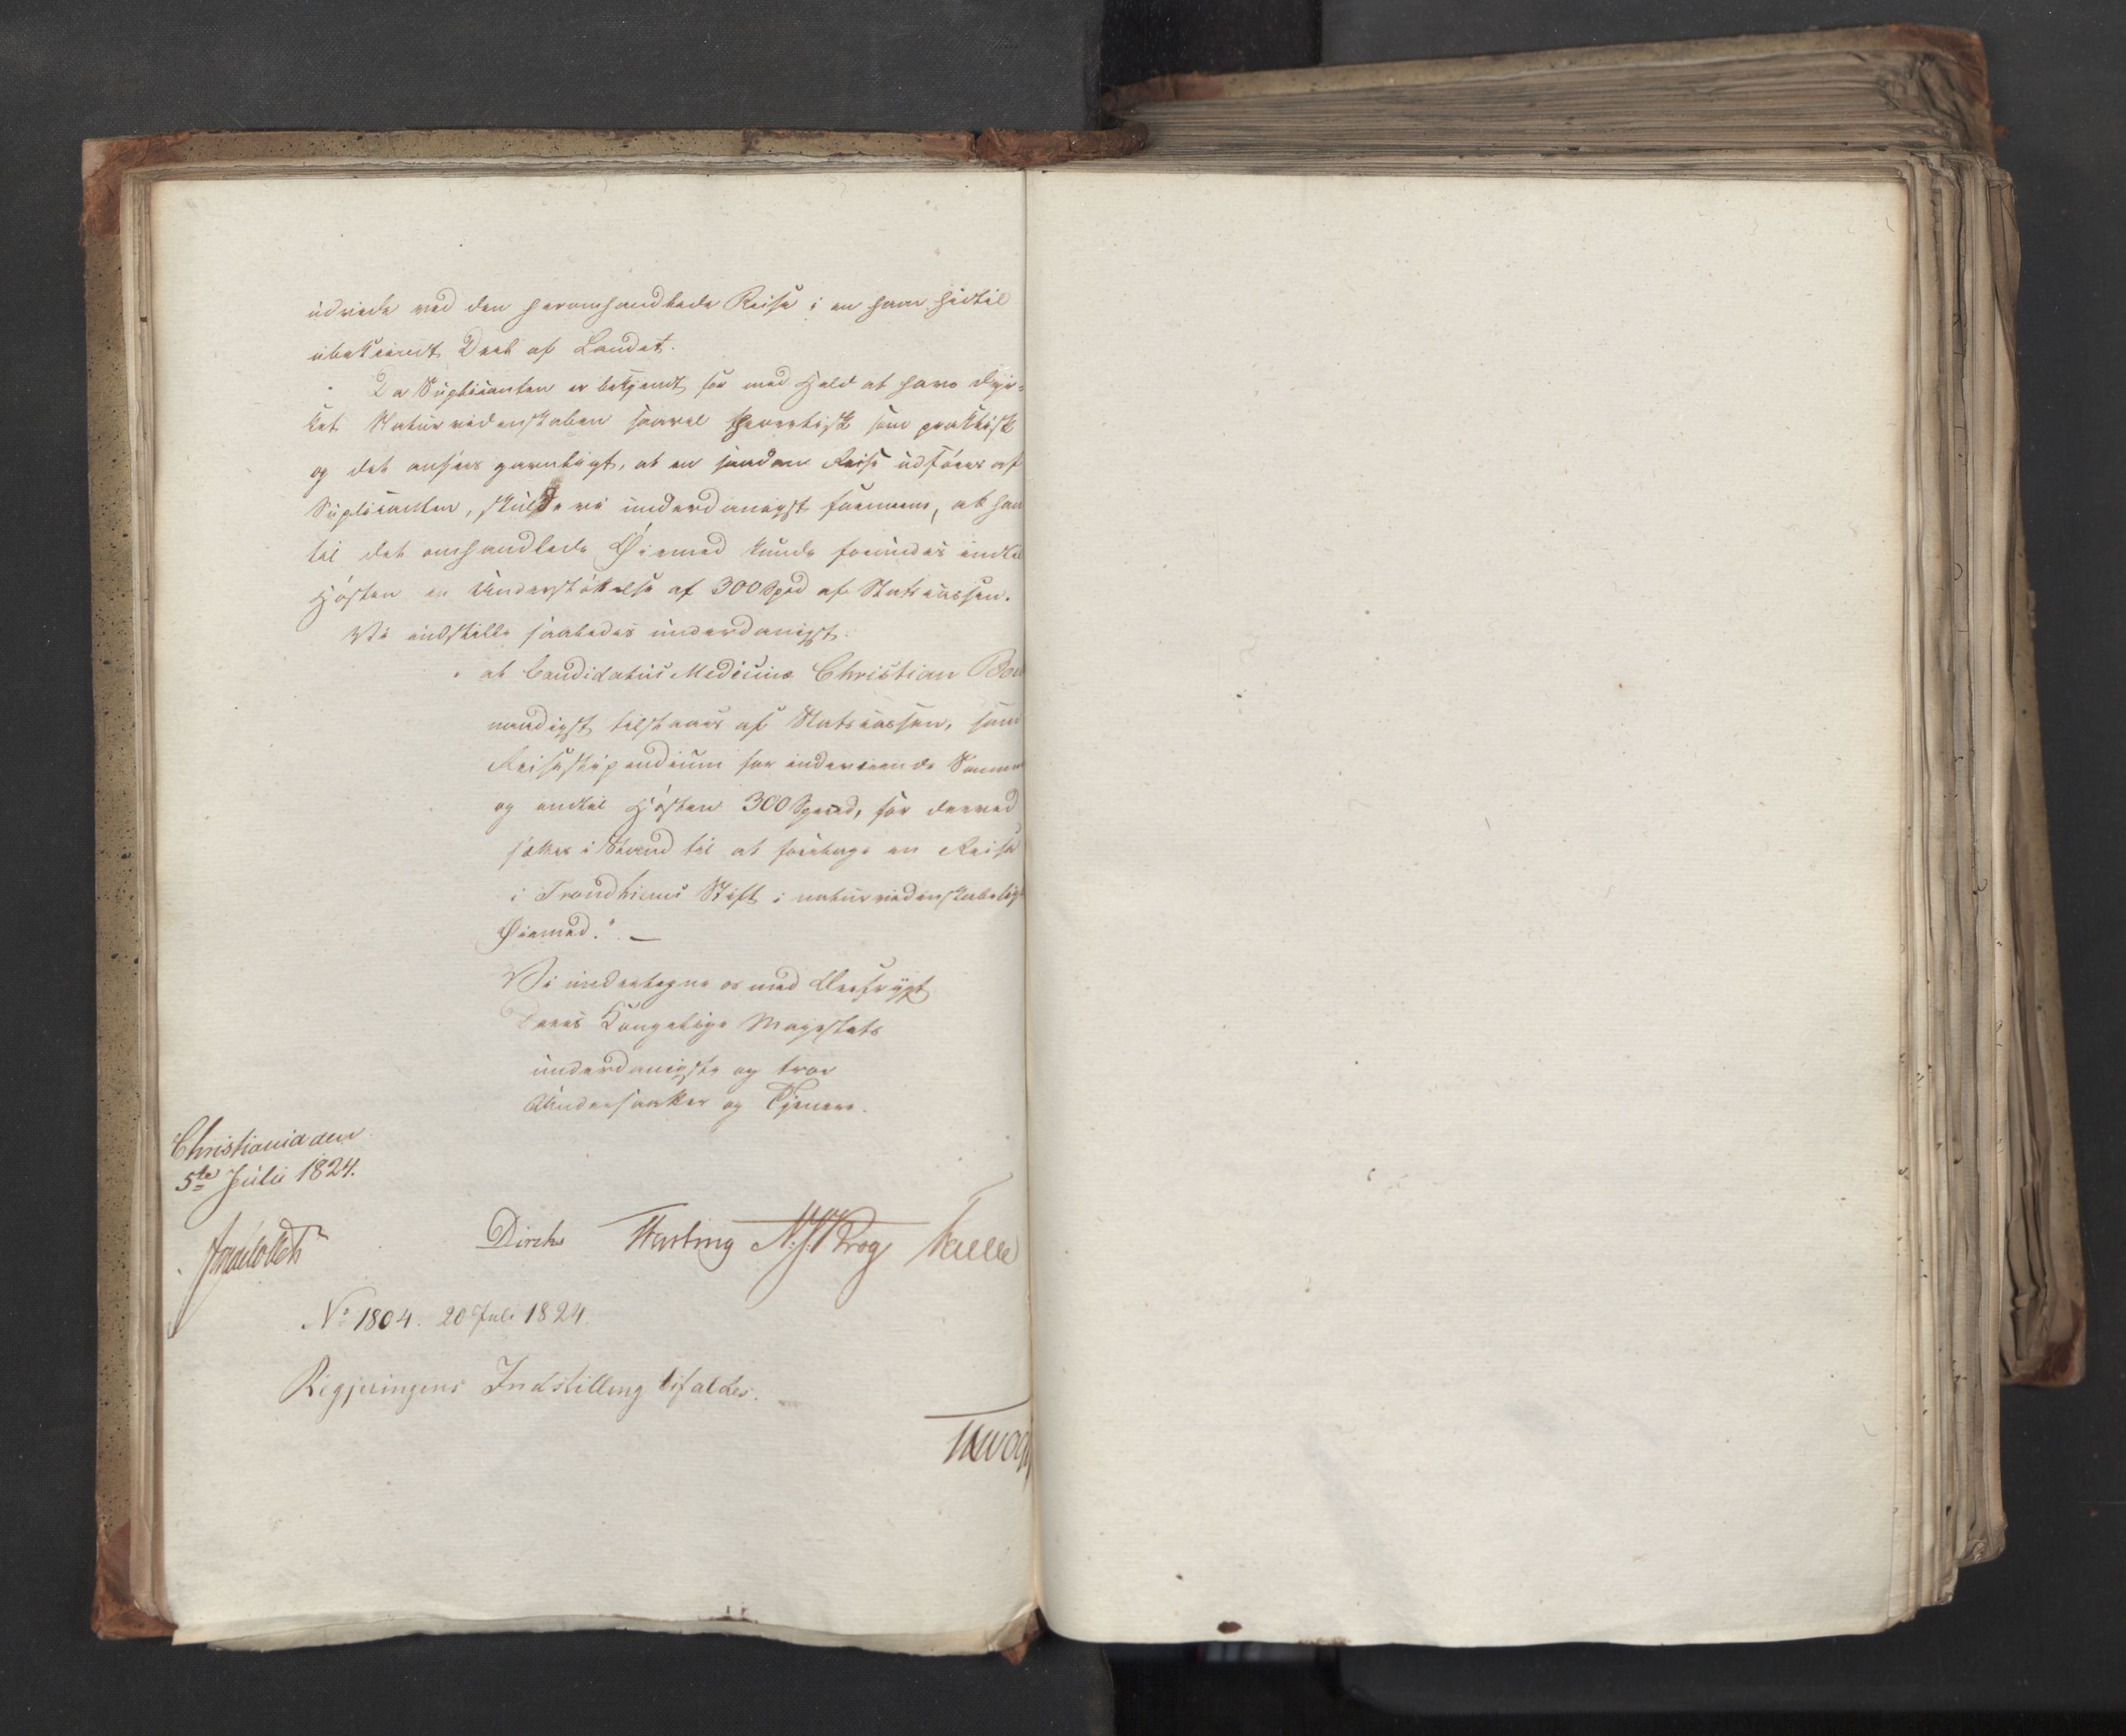 udrede ved den heromhandlede Reise i en saa hidtil
ubekiendt Deel af Landet.
Da Suplicanten er bekjendt for med Held at have dyr-
ket Naturvidenskaben saavel theoretisk som praktisk
og det ansees gavnligt, at en saadan Reise udføres af
Suplicanten, skulde vi underdanigst formene, at han
til det omhandlede Øiemed kunde forundes indtil
Høsten en Understøttelse af 300 Spd af Statscassen.
Vi indstille saaledes underdanigst:
at Candidatus Medicinæ Christian Boe
naadigst tilstaaes af Statscassen, som
Reisestipendium for indeværende Sommer
og indtil Høsten 300 Specd, for derved
sættes i Stand til at foretage en Reise
i Trondhiems Stift i naturvidenskabeligt
Øiemed." —
Vi undertegne os med Ærefrygt
Deres Kongelige Majestæts
underdanigste og troe
Undersaatter og Tjenere.
Christiania den
5te Julii 1824.
Diriks N. J. Krog
No 1804. 20 Juli 1824.
Regjeringens Indstilling bifaldes.